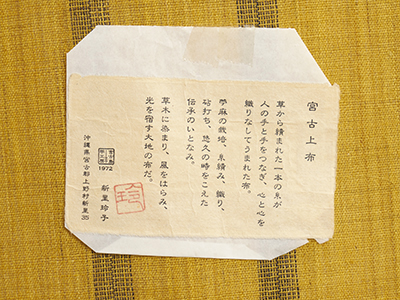 宮古上布
草から績まれた一本の糸が
人の手と手をつなぎ、心と心を
織りなしてうまれた布。
苧麻の栽培、糸績み、織り、
砧打ち、悠久の時をこえた
伝承のいとなみ。
草木に染まり、風をはらみ、
光を宿す大地の布だ。
1972
新里玲子
玲
沖縄県宮古郡上野村新里35